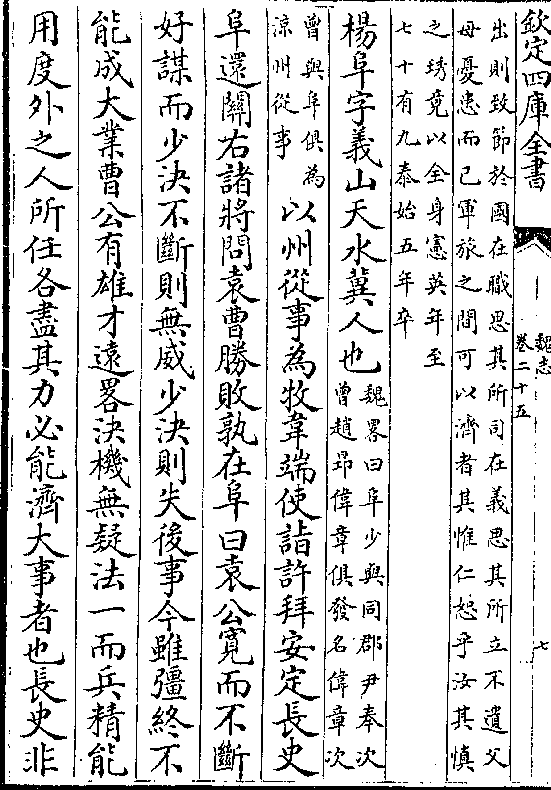 欽定四庫全書
魏志
卷二十五
七
出則致節於國在職思其所司在義思其所立不遺父
母憂患而已軍旅之間可以濟者其惟仁恕乎汝其慎
之琇竟以全身憲英年至
七十有九泰始五年卒
楊阜字義山天水冀人也
魏畧曰阜少與同郡尹奉次
曾趙昻偉章俱發名偉章次
曾與阜俱為
涼州從事
以州從事為牧韋端使詣許拜安定長史
阜還關右諸將問袁曹勝敗孰在阜曰袁公寛而不斷
好謀而少決不斷則無威少決則失後事今雖彊終不
能成大業曹公有雄才遠畧決機無疑法一而兵精能
用度外之人所任各盡其力必能濟大事者也長史非